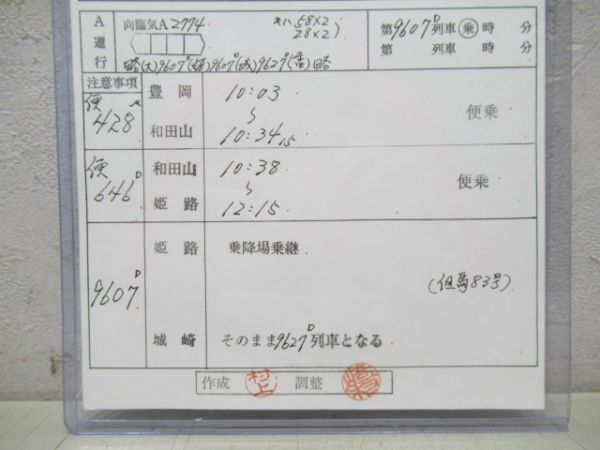 A運行
向臨気A2774
キハ58×2
28×2
第9607D列車 乗 時 分
第 列車 時 分
略(大)9607D(姫)9607D(城)9627D(豊)略
注意事項
便 428
豊岡
10:03
和田山
10:34 15
便乗
便 646D
和田山
10:38
姫路
12:15
便乗
9607D
姫路
乗降場乗継
(但馬83号)
城崎
そのまま9627D列車となる
作成 村上 調整